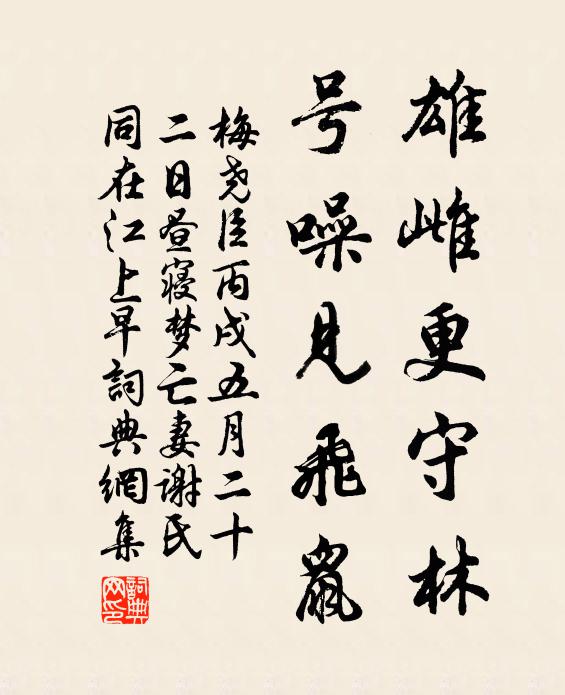 雄雌更守林
号噪见飛鼠
梅尧臣丙戌五月二十
二日昼寝梦亡妻谢氏
同在江上早詞典網集
詞典网印